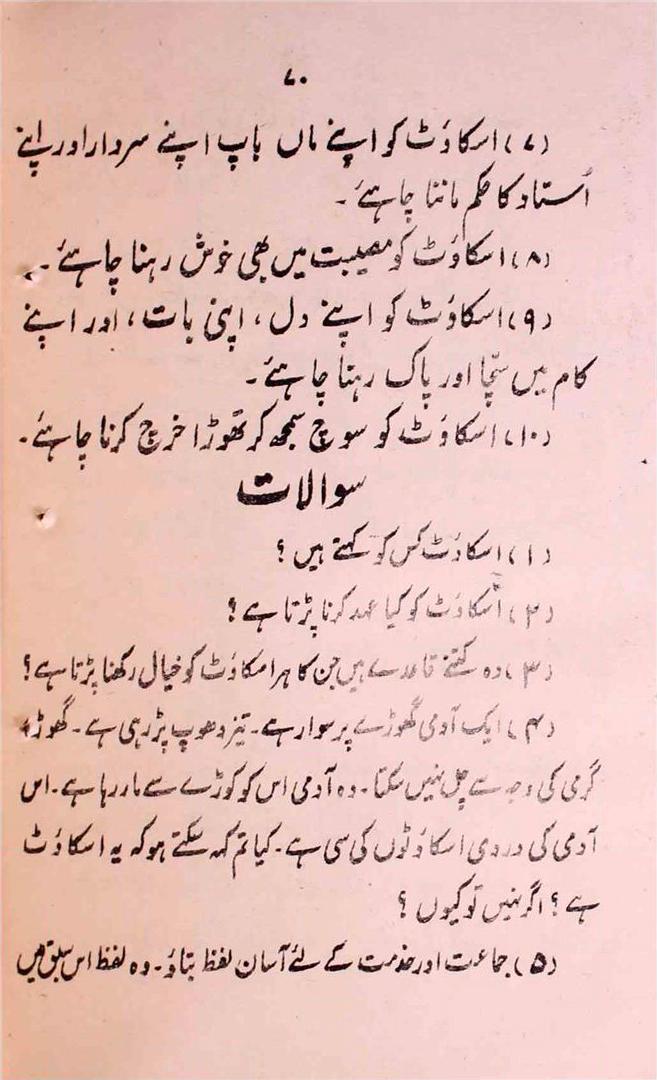 ۷۰
(۷) اسکاؤٹ کو اپنے ماں باپ اپنے سردار اور اپنے
اُستاد کا حکم ماننا چاہئے۔
(۸) اسکاؤٹ کو مصیبت میں بھی خوش رہنا چاہئے۔
(۹) اسکاؤٹ کو اپنے دل، اپنی بات، اور اپنے
کام میں سچّا اور پاک رہنا چاہئے۔
(۱۰) اسکاؤٹ کو سوچ سمجھ کر تھوڑا خرچ کرنا چاہئے۔
سوالات
(۱) اسکاؤٹ کس کو کہتے ہیں ؟
(۲) اسکاؤٹ کو کیا عہد کرنا پڑتا ہے ؟
(۳) وہ کتنے قاعدے ہیں جن کا ہر اسکاؤٹ کو خیال رکھنا پڑتا ہے ؟
(۴) ایک آدمی گھوڑے پر سوار ہے۔ تیز دھوپ پڑ رہی ہے۔ گھوڑا
گرمی کی وجہ سے چل نہیں سکتا۔ وہ آدمی اس کو کوڑے سے مار رہا ہے۔ اس
آدمی کی وردی اسکاؤٹوں کی سی ہے۔ کیا تم کہہ سکتے ہو کہ یہ اسکاؤٹ
ہے ؟ اگر نہیں تو کیوں ؟
(۵) جماعت اور خدمت کے لئے آسان لفظ بتاؤ۔ وہ لفظ اس سبق میں